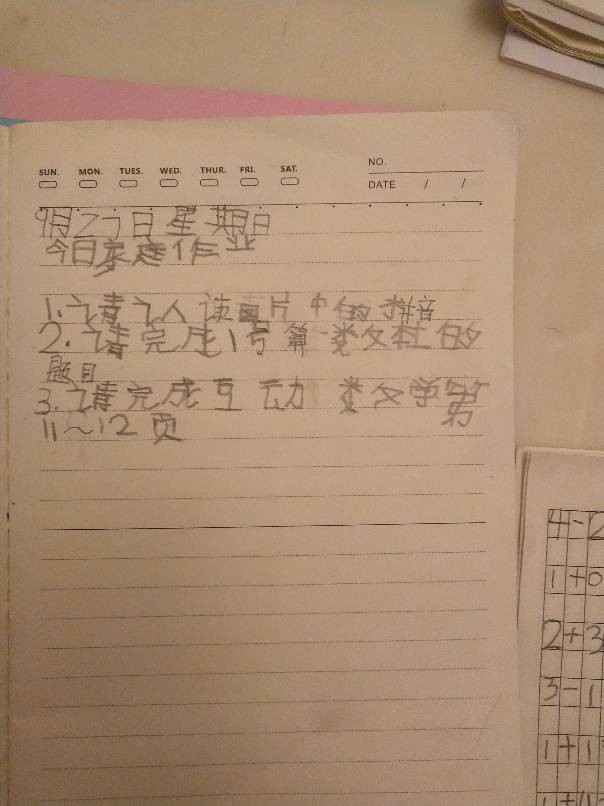 SUN. MON. TUES. WED. THUR. FRI. SAT.
NO.
DATE / /
9月27日星期日
今日家庭作业
1.请认读图片中的拼音
2.请完成1号算数本的
题目
3.请完成互动数学第
11~12页
4-2
1+0
2+3
3-1
1+1